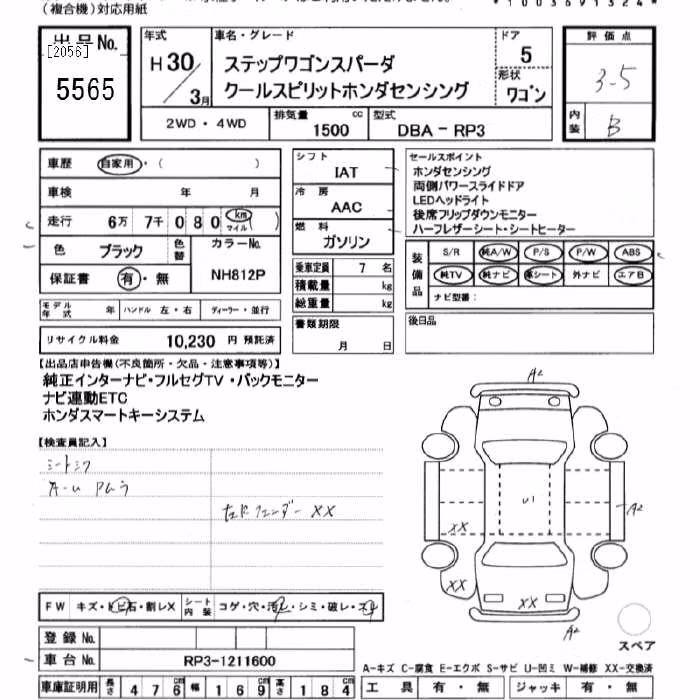 (複合機)対応用紙
*1003691324*
出品No.
[2056]
5565
年式
H30/3月
車名・グレード
ステップワゴンスパーダ
クールスピリットホンダセンシング
ドア
5
形状
ワゴン
評価点
3-5
内装
B
2WD・4WD
排気量
1500 cc
型式
DBA-RP3
車歴
自家用・( )
車検 年 月
走行 6万7千080 (km マイル)
色 ブラック 色替
カラーNo.
NH812P
保証書 有・無
シフト
IAT
冷房
AAC
燃料
ガソリン
乗車定員 7 名
積載量 kg
総重量 kg
書類期限
月 日
セールスポイント
ホンダセンシング
両側パワースライドドア
LEDヘッドライト
後席フリップダウンモニター
ハーフレザーシート・シートヒーター
装備品
S/R 純A/W P/S P/W ABS
純TV 純ナビ 革シート 外ナビ エアB
ナビ型番:
後日品
モデル年式 年 ハンドル 左・右 ディーラー・並行
リサイクル料金 10,230 円 預託済
【出品店申告欄(不良箇所・欠品・注意事項等)】
純正インターナビ・フルセグTV・バックモニター
ナビ連動ETC
ホンダスマートキーシステム
【検査員記入】
シートシワ
左Fフェンダー XX
A2
U1
XX
A2
XX
XX
A2
スペア
FW キズ・トビ石・割レX
シート内装 コゲ・穴・汚レ・シミ・破レ・スレ
登録No.
車台No. RP3-1211600
車庫証明用 長さ 476 幅 169 高さ 184
A-キズ C-腐食 E-エクボ S-サビ U-凹ミ W-補修 XX-交換済
工具 有・無 ジャッキ 有・無